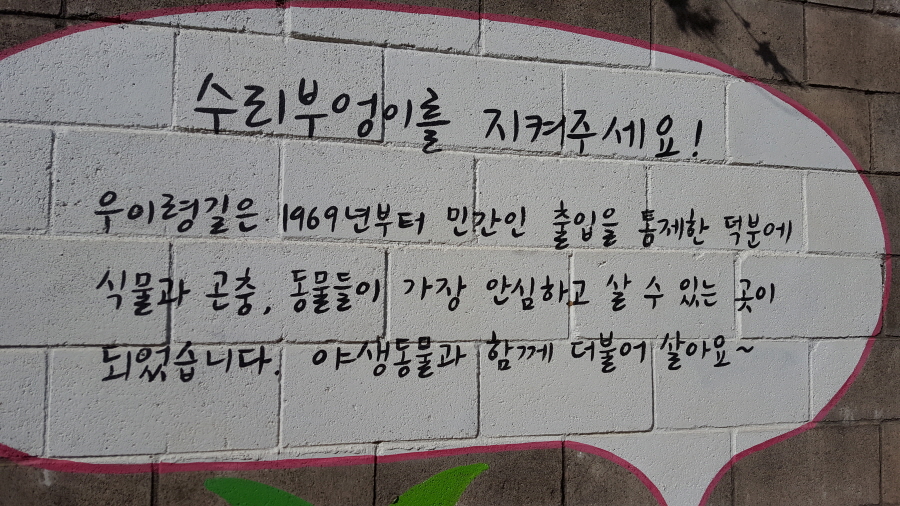 수리부엉이를 지켜주세요!
우이령길은 1969년부터 민간인 출입을 통제한 덕분에
식물과 곤충, 동물들이 가장 안심하고 살 수 있는 곳이
되었습니다. 야생동물과 함께 더불어 살아요~